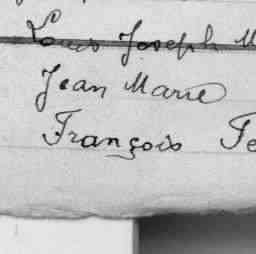 Louis Joseph M
Jean Marie
François Fe